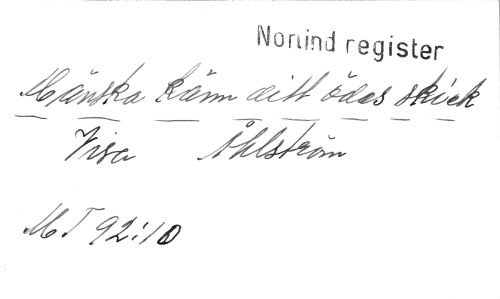 Nonind register
Mänska känn ditt ödes skick
Visa Åhlström
MT 92:10